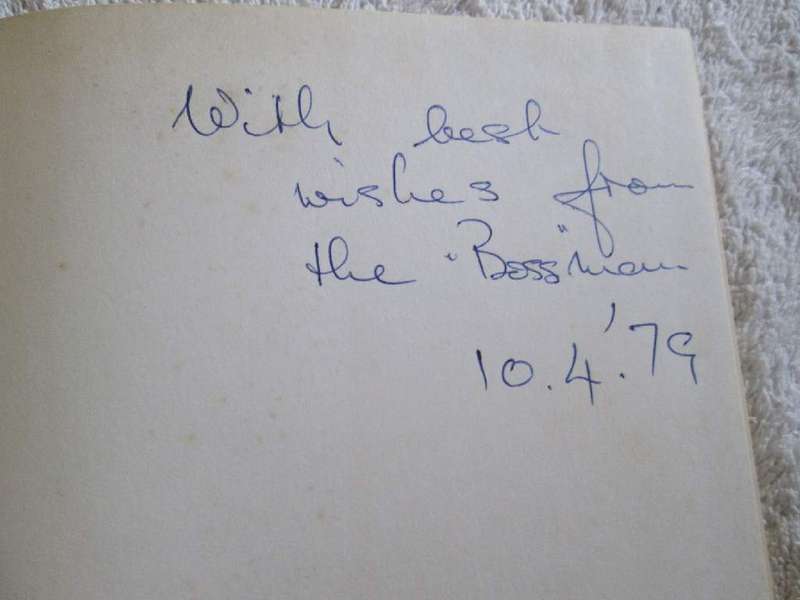 With best
wishes from
the "Boss" man
10.4.'79